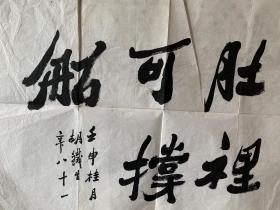 肚裡
可撑
船
壬申桂月
胡鐵生
年八十一